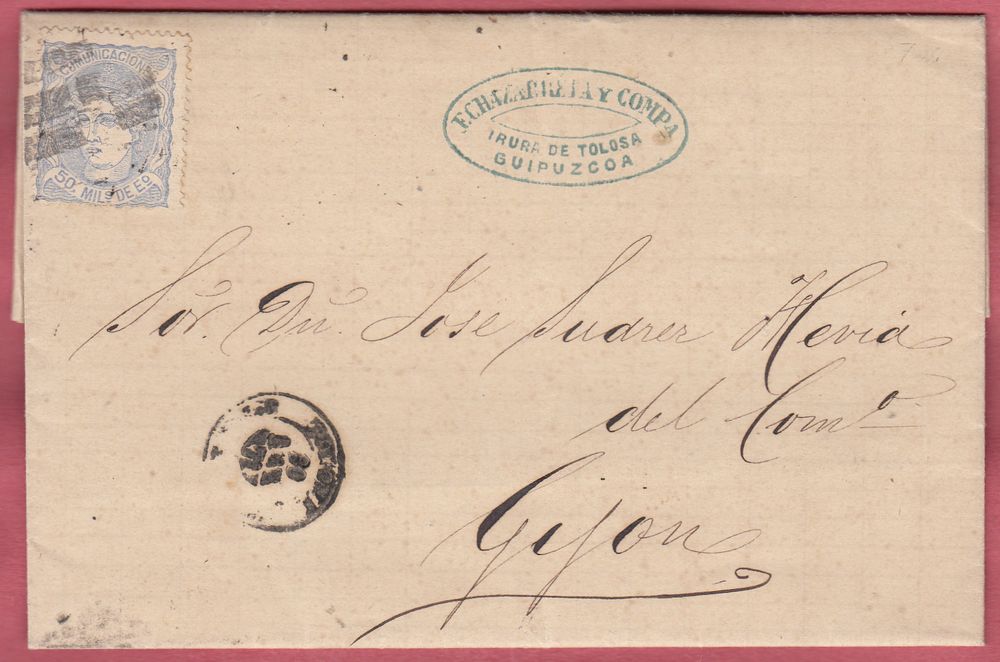 COMUNICACIONES
50 MILS DE EO
Y COMPA
IRURA DE TOLOSA
GUIPUZCOA
Sór. Dn. Jose Suarez Hevia
del Como
Gijon